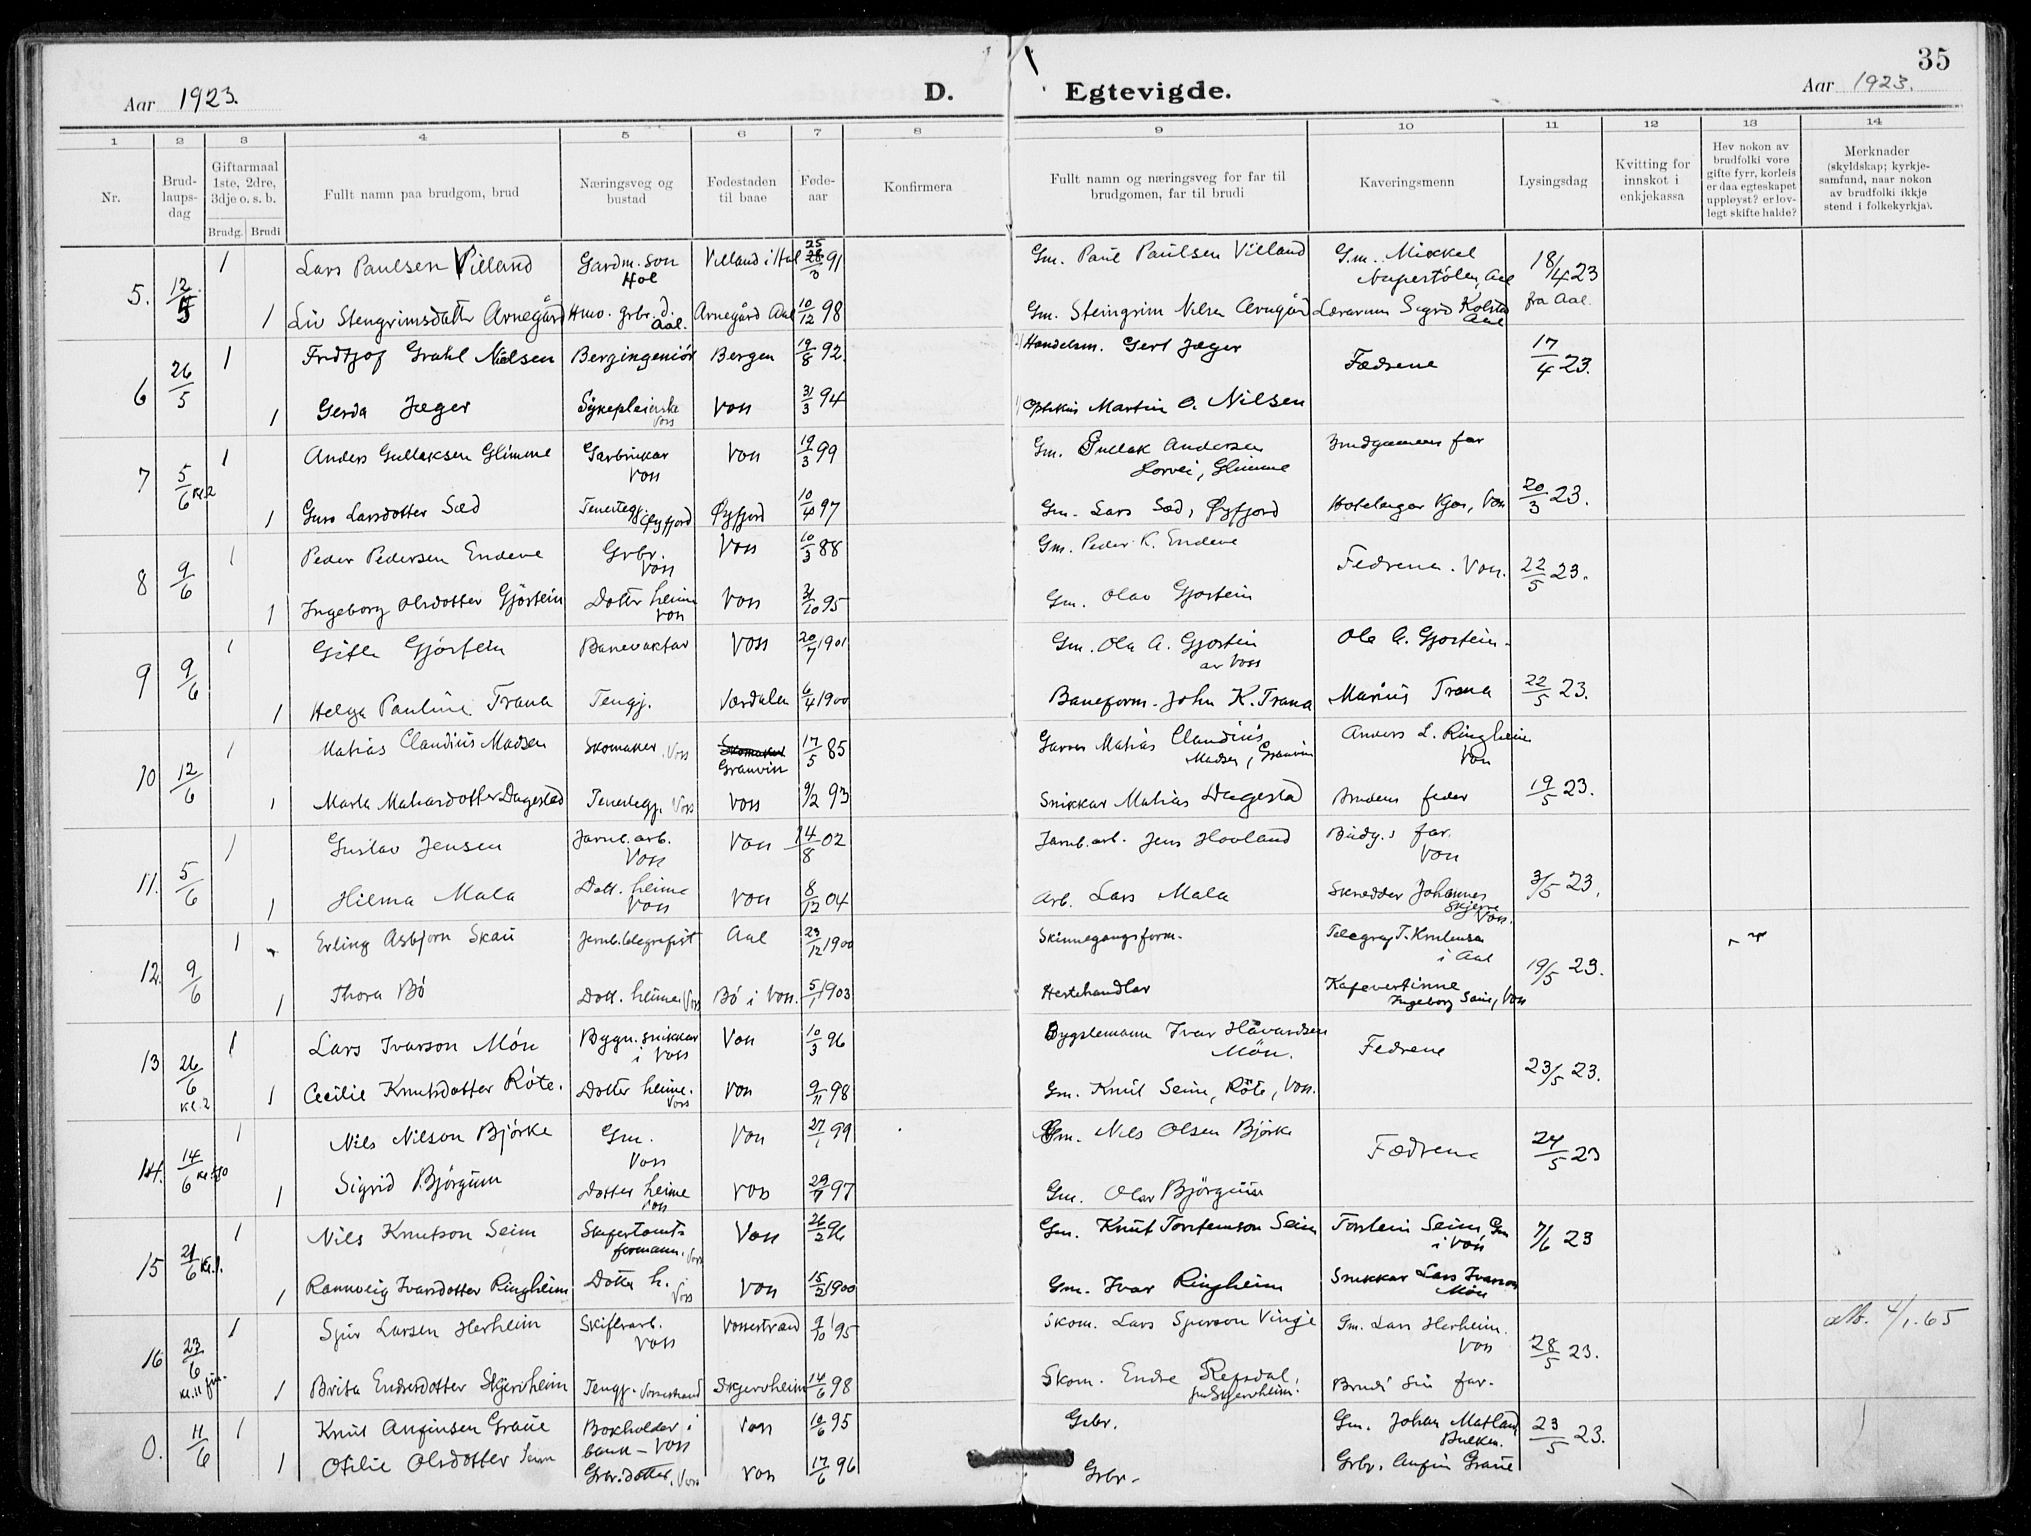 35
Aar 1923.
D. Egtevigde.
Aar 1923.
1 2 3 4 5 6 7 8 9 10 11 12 13 14
Nr.
Brud-
laups-
dag
Giftarmaal
1ste, 2dre,
3dje o. s. b.
Brudg. Brudi
Fullt namn paa brudgom, brud
Næringsveg og
bustad
Fødestaden
til baae
Føde-
aar
Konfirmera
Fullt namn og næringsveg for far til
brudgomen, far til brudi
Kaveringsmenn
Lysingsdag
Kvitting for
innskot i
enkjekassa
Hev nokon av
brudfolki vore
gifte fyrr, korleis
er daa egteskapet
uppløyst? er lov-
legt skifte halde?
Merknader
(skyldskap; kyrkje-
samfund, naar nokon
av brudfolki ikkje
stend i folkekyrkja).
5. 12/5 1 Lars Paulsen Villand Gardm. son Villand i Hol 25/3 91 Gm. Paul Paulsen Villand G.m. Mikkel 18/4 23
Hol Aal
1 Liv Stengrimsdatter Arnegård Hmv. grbr. d. Arnegård Aal 10/12 98 Gm. Steingrim Nilsen Arnegård Lærarinne Sigrid Kolstad fra Aal.
Aal. Aal
6 26/5 1 Fridtjof Grahl Nielsen Bergingeniör Bergen 19/8 92. Handelsm. Gert Jæger Fædrene 17/4 23.
1 Gerda Jæger Sykepleierske Voss 31/3 94 Martin O. Nilsen
Voss
7 5/6 Kl. 2 1 Anders Gullaksen Glimme Garbrukar Voss 19/3 99 Gm. Gullak Andersen Brudgomens far
Voss Horvei, Glimme
1 Guro Larsdotter Sæd Tenestegj. Øyfjord 10/4 97 Gm. Lars Sæd, Øyfjord Kjos, Voss 20/3 23.
Øyfjord
8 9/6 1 Peder Pedersen Endeve Grbr. Voss 10/3 88 Gm. Peder K. Endeve Fedrene. Voss. 22/5 23.
Voss
1 Ingeborg Olsdotter Gjøstein Dotter heime Voss 31/10 95 Gm. Olav Gjøstein
Voss
9 9/6 1 Gitle Gjøstein Banevaktar Voss 20/7 1901 Gm. Ola A. Gjøstein Ola A. Gjøstein.
av Voss
1 Helga Pauline Trana Tengj. Værdalen 6/4 1900 Baneform. John K. Trana Marius Trana 22/5 23.
10 12/6 1 Matias Claudius Madsen Skomaker. Voss Skomaker 17/5 85 Garver Matias Claudius Anders L. Ringheim
Granvin Madsen, Granvin Voss
1 Marta Matiasdotter Dagestad Tenestegj. Voss Voss 9/2 93 Snikkar Matias Dagestad Brudens fader 19/5 23.
11. 5/6 1 Gustav Jensen Jarnb. arb. Voss 14/8 02 Jarnb. arb. Jens Hovland Brudg.s far.
Voss Voss
1 Hilma Mala Dott. heime Voss 8/12 04 Arb. Lars Mala Skredder Johannes 3/5 23.
Voss Skjerve Voss.
12. 9/6 1 Erling Asbjørn Skau Jernb.telegrafist Aal 23/12 1900 Skinnegangsform. Telegraf. T. Knutsen
i Aal
1 Thora Bø Dott. heime. Voss Bø i Voss. 5/1 1903 Hestehandlar Kafevertinne 19/5 23.
Ingeborg Seim, Voss
13 26/6 Kl. 2 1 Lars Ivarson Møn Bygn. snikkar Voss 10/3 96 Bygslemann Ivar Håvardsen Fedrene
i Voss Møn.
1 Cecilie Knutsdotter Røte. Dotter heime. Voss 9/11 98 Gm. Knut Seim, Røte, Voss. 23/5 23.
Voss
14. 14/6 1 Nils Nilson Bjørke Gm. Voss 27/1 99 Gm. Nils Olsen Bjørke Fædrene 24/5 23
Voss
1 Sigrid Bjørgum Dotter heime Voss 97 Gm. Olav Bjørgum
Voss
15 21/6 Kl. 1. 1 Nils Knutson Seim formann. Voss Voss 26/2 96 Gm. Knut Torsteinson Seim Torstein Seim, Gm 7/6 23
i Voss
1 Rannveig Ivarsdotter Ringheim Dotter h. Voss 15/2 1900 Gm. Ivar Ringheim Snikkar Lars Ivarson
Voss Møn
16 23/6 Kl. 11 1 Sjur Larsen Herheim Skiferarb. Vossestrand 9/10 95 Skom. Lars Sjurson Vinje Gm. Lars Herheim. 4/1. 65
Voss Voss 28/5 23.
1 Brita Endresdotter Skjervheim Tengj. Vossestrand Skjervheim 14/6 98 Skom. Endre Refsdal, Brudi sin far.
Skjervheim.
0. 11/6 1 Knut Anfinsen Graue Bokholdar i Voss 10/6 95 Grbr. Gm. Johan Matland 23/5 23.
bank – Voss Bulken.
1 Otilie Olsdotter Seim Grbr. dotter. Voss Voss 17/6 96 Grbr. Grbr. Anfin Graue